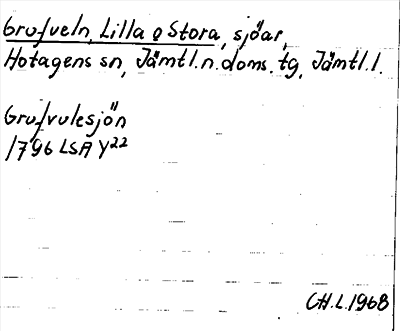 Grufveln, Lilla o Stora, sjöar,
Hotagens sn, Jämtl. n. doms. tg, Jämtl. l.
Grufvulesjön
1796 LSA Y22
CH.L. 1968